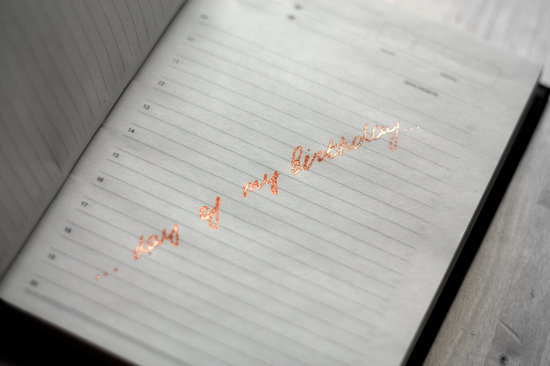 11
12
13
14
15
16
17
18
19
20
... day of my birthday...